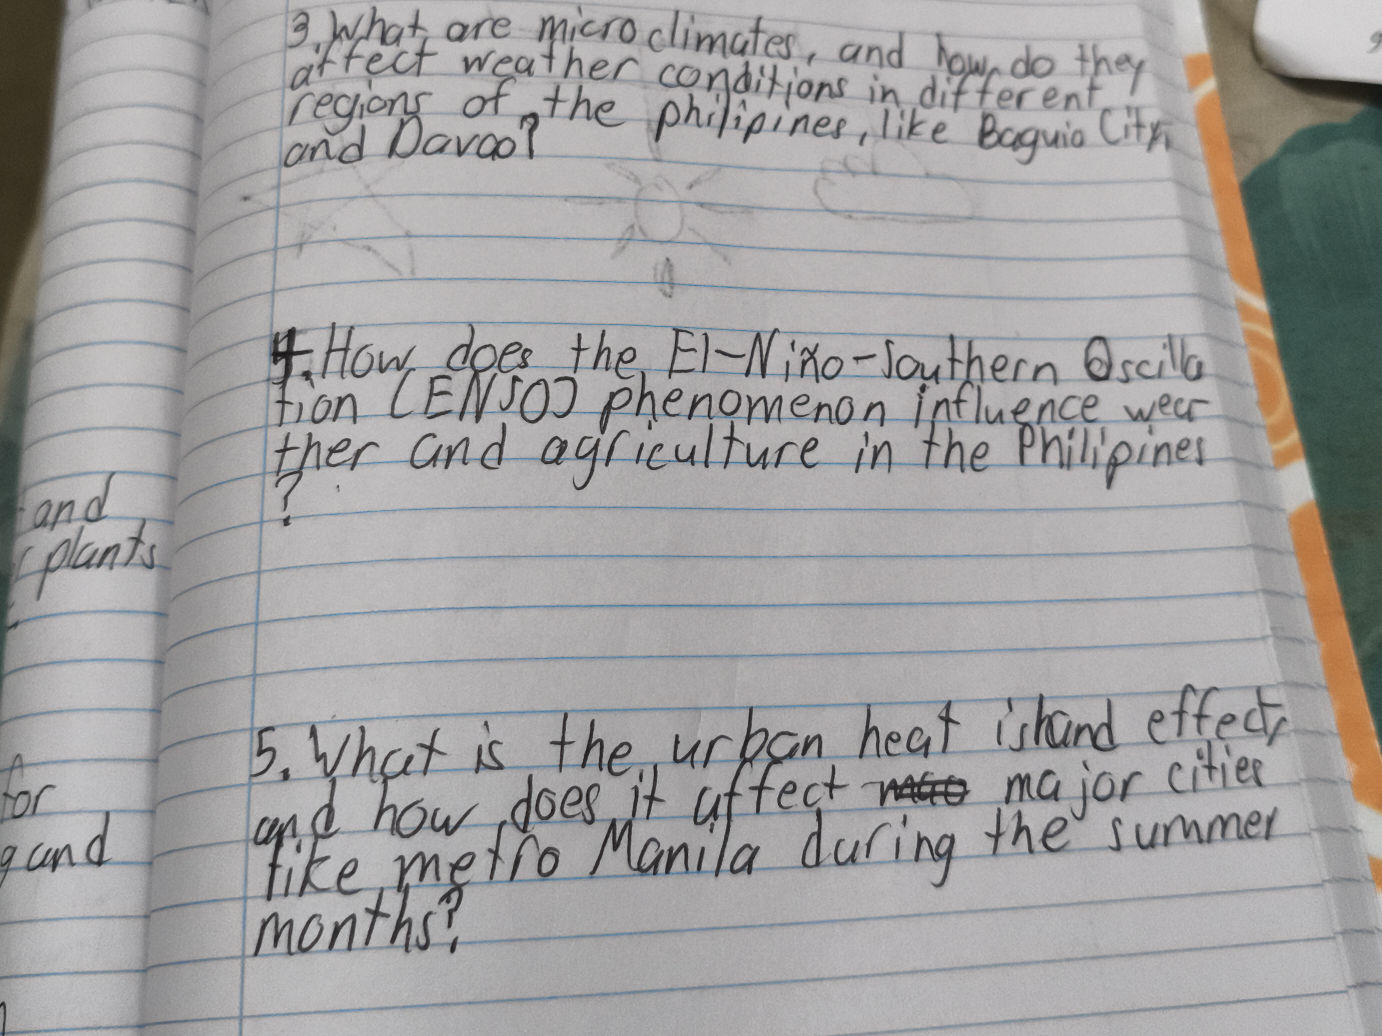 3. What are microclimates, and how do they
affect weather conditions in different
regions of the philipines, like Baguio City,
and Davao?
4. How does the El-Niño-Southern Oscilla
tion (ENSO) phenomenon influence wea
ther and agriculture in the Philipines
?
5. What is the urban heat island effect,
and how does it affect major cities
like metro Manila during the summer
months?
and
plants
for
g and